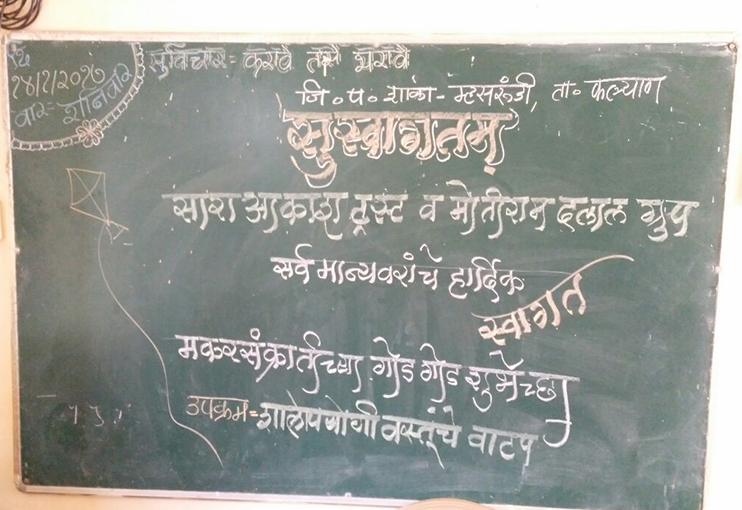 १४/१/२०१७
वार- शनिवार
सुविचार = करावे तसे भरावे
जि. प. शाळा - म्हसरुंडी, ता. कल्याण
सुस्वागतम्
सारा आकाश ट्रस्ट व मोतीराम दलाल ग्रुप
सर्व मान्यवरांचे हार्दिक
स्वागत
मकरसंक्रांतीच्या गोड गोड शुभेच्छा
उपक्रम = शालोपयोगी वस्तूंचे वाटप